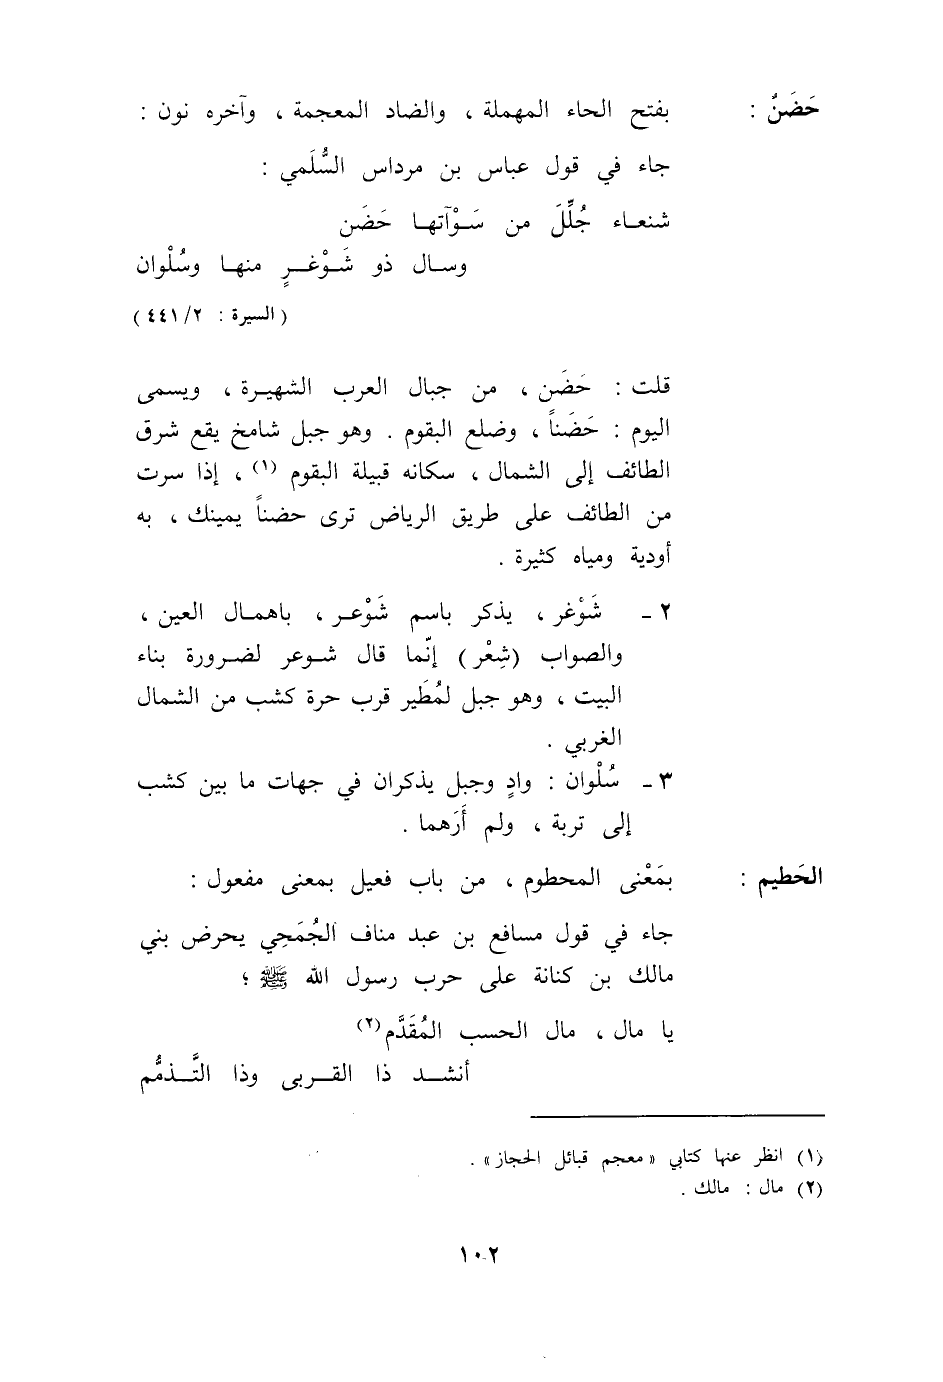 حَضَنٌ : بفتح الحاء المهملة ، والضاد المعجمة ، وآخره نون :
جاء في قول عباس بن مرداس السُّلَمي :
شنعاء جُلِّلَ من سَوْآتها حَضَن
وسال ذو شَوْغرٍ منها وسُلْوان
( السيرة : ٢/ ٤٤١ )
قلت : حَضَن ، من جبال العرب الشهيرة ، ويسمى
اليوم : حَضَناً ، وضلع البقوم . وهو جبل شامخ يقع شرق
الطائف إلى الشمال ، سكانه قبيلة البقوم (١) ، إذا سرت
من الطائف على طريق الرياض ترى حضناً يمينك ، به
أودية ومياه كثيرة .
٢ - شَوْغر ، يذكر باسم شَوْعر ، باهمال العين ،
والصواب (شِعْر ) إنّما قال شوعر لضرورة بناء
البيت ، وهو جبل لمُطَير قرب حرة كشب من الشمال
الغربي .
٣ - سُلْوان : وادٍ وجبل يذكران في جهات ما بين كشب
إلى تربة ، ولم أَرَهما .
الحَطيم : بمَعْنى المحطوم ، من باب فعيل بمعنى مفعول :
جاء في قول مسافع بن عبد مناف الجُمَحِي يحرض بني
مالك بن كنانة على حرب رسول الله ﷺ ؛
يا مال ، مال الحسب المُقَدَّم (٢)
أنشد ذا القربى وذا التَّذمُّم
(١) انظر عنها كتابي « معجم قبائل الحجاز » .
(٢) مال : مالك .
١٠٢